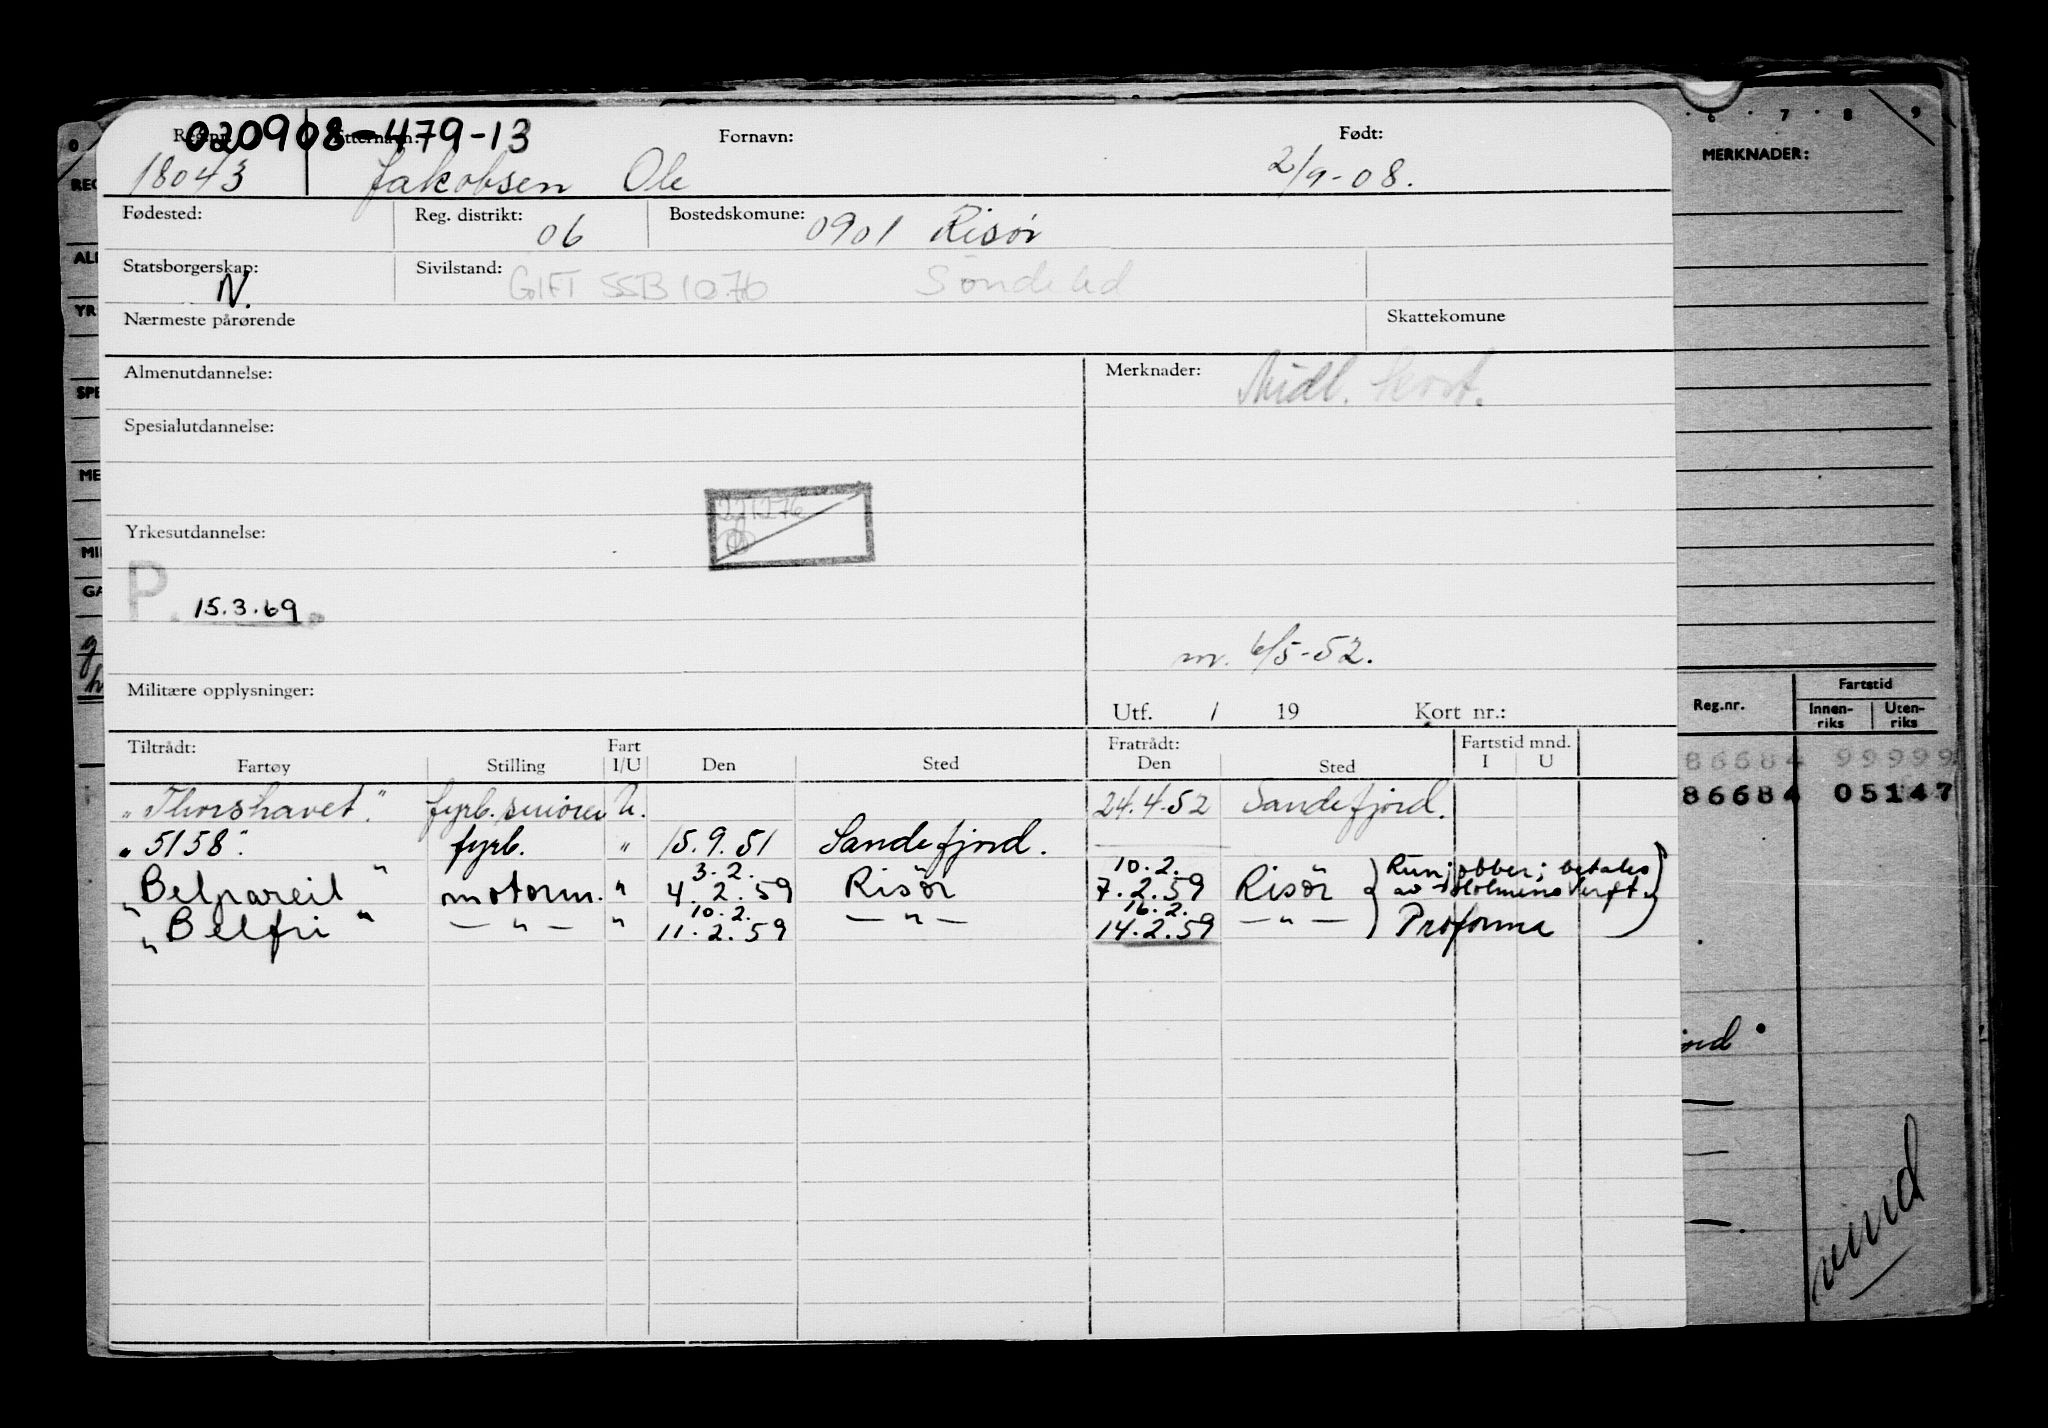 020908-479-13
Reg.nr. Etternavn: Fornavn: Født:
18043 Jakobsen Ole 2/9-08.
Fødested: Reg. distrikt: 06 Bostedskomune: 0901 Risör
Statsborgerskap: N. Sivilstand: GIFT SSB 10.76 Söndeled
Nærmeste pårørende Skattekomune
Almenutdannelse: Merknader: Midl. kort.
Spesialutdannelse:
22 12 76
Yrkesutdannelse:
P. 15.3.69.
m. 6/5-52.
Militære opplysninger:
Utf. / 19 Kort nr.:
Tiltrådt: Fart Fratrådt: Fartstid mnd.
Fartøy Stilling I/U Den Sted Den Sted I U
"Thorshavet". fyrb. smörer U. 24.4.52 Sandefjord.
"5158". fyrb. " 15.9.51 Sandefjord.
3.2. 10.2. Runjobber; betales
"Belpareil" motorm. " 4.2.59 Risör 7.2.59 Risör av Holmens Verft.
10.2. 16.2.
"Belfri" — " — " 11.2.59 — " — 14.2.59 — " — Proforma
0 6 7 8 9
MERKNADER:
REG
ALM
YR
SPE
ME
MI
GA
Reg.nr. Fartstid
Innen-riks Uten-riks
86684 99999
86684 05147